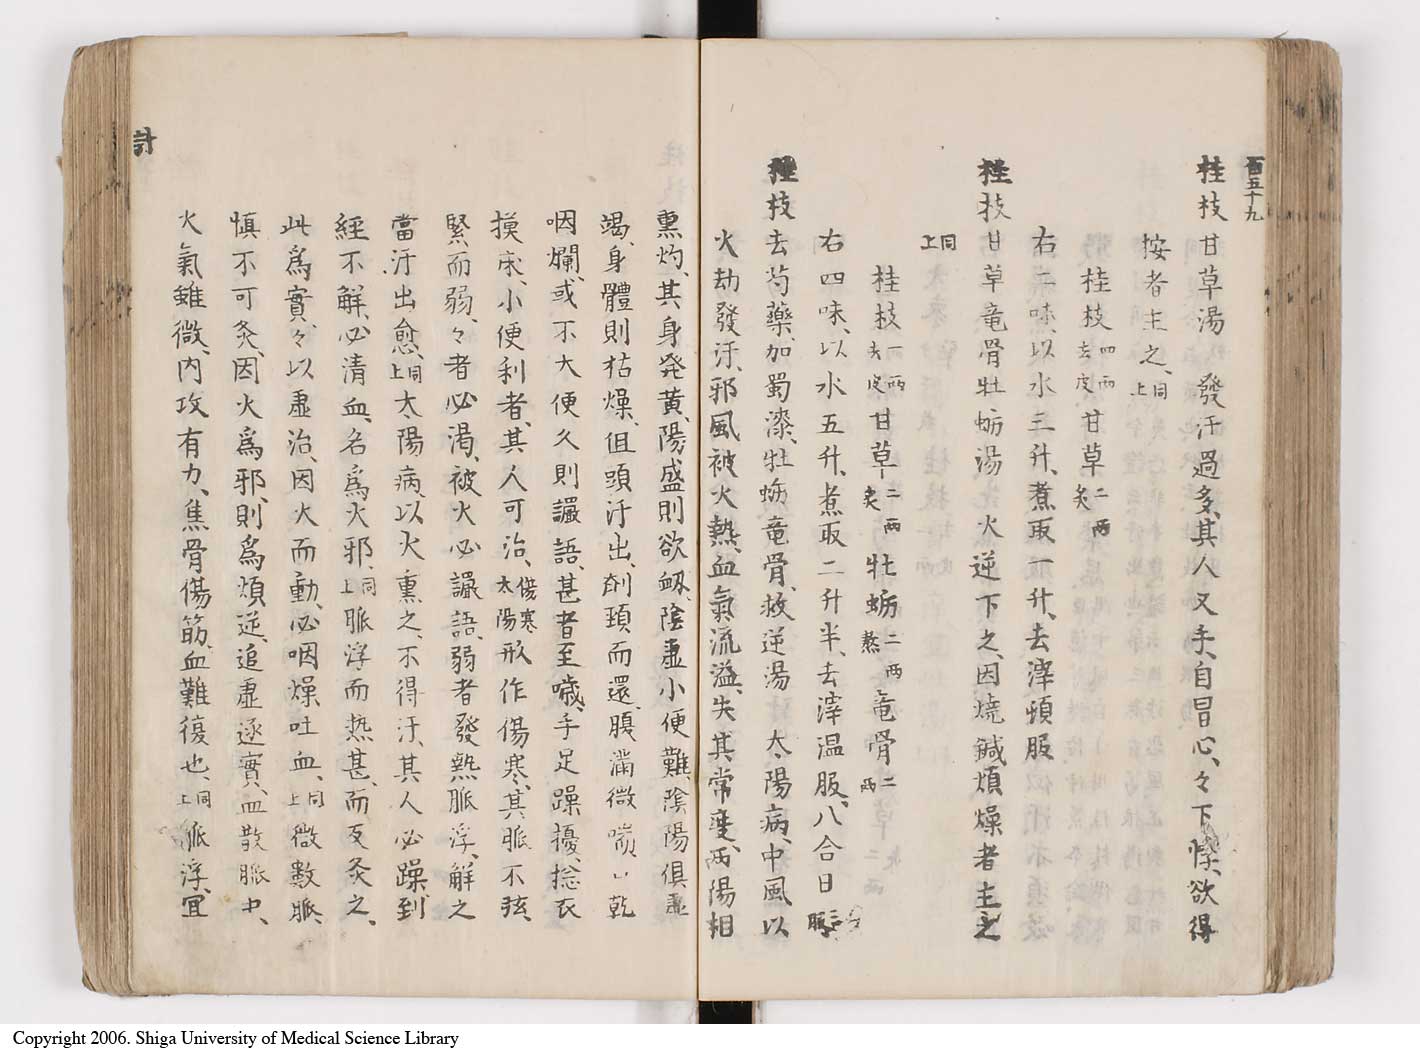 百五十九
桂枝甘草湯 發汗過多、其人叉手、自冒心、々下悸、欲得
按者主之、同上
桂枝四兩去皮甘草二兩炙
右二味、以水三升、煮取一升、去滓頓服
桂枝甘草竜骨牡蛎湯 火逆下之、因燒鍼煩燥者主之
同上
桂枝一兩去皮甘草二兩炙牡蛎二兩熬竜骨二兩
右四味、以水五升、煮取二升半、去滓温服、八合日三服
桂枝去芍藥、加蜀漆、牡蛎竜骨、救逆湯 太陽病、中風以
火劫發汗、邪風被火熱、血氣流溢、失其常度、兩陽相
熏灼、其身発黄、陽盛則欲衂、陰虚小便難、陰陽倶虚
竭、身體則枯燥、但頭汗出、劑頚而還、腹満微喘、口乾
咽爛、或不大便久則讝語、甚者至噦、手足躁擾、捻衣
摸床、小便利者、其人可治、傷寒太陽形作傷寒、其脈不弦、
緊而弱、々者必渇、被火必讝語、弱者發熱脈浮、解之
當汗出愈、同上太陽病、以火熏之、不得汗、其人必躁到
經不解、必清血、名爲火邪、同上脈浮而热甚、而反灸之、
此爲實、々以虚治、因火而動、必咽燥吐血、同上微數脈、
慎不可灸、因火爲邪、則爲煩逆、追虚逐實、血散脈中、
火氣雖微、内攻有力、焦骨傷筋、血難復也、同上脈浮、宜
Copyright 2006. Shiga University of Medical Science Library